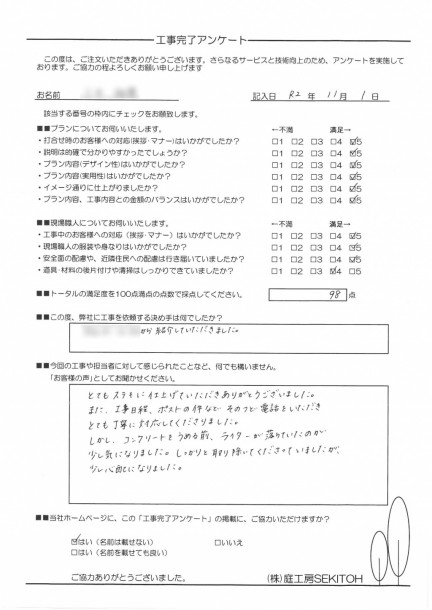 工事完了アンケート
この度は、ご注文いただきありがとうございます。さらなるサービスと技術向上のため、アンケートを実施して
おります。ご協力の程よろしくお願い申し上げます
お名前 記入日 R2 年 11 月 1 日
該当する番号の枠内にチェックをお願致します。
■■プランについてお伺いいたします。 ←不満 満足→
・打合せ時のお客様への対応(挨拶・マナー)はいかがでしたか? □1 □2 □3 □4 ☑5
・説明は的確で分かりやすかったでしょうか? □1 □2 □3 □4 ☑5
・プラン内容(デザイン性)はいかがでしたか? □1 □2 □3 □4 ☑5
・プラン内容(実用性)はいかがでしたか? □1 □2 □3 □4 ☑5
・イメージ通りに仕上がりましたか? □1 □2 □3 □4 ☑5
・プラン内容、工事内容との金額のバランスはいかがでしたか? □1 □2 □3 □4 ☑5
■■現場職人についてお伺いいたします。 ←不満 満足→
・工事中のお客様への対応(挨拶・マナー)はいかがでしたか? □1 □2 □3 □4 ☑5
・現場職人の服装や身なりはいかがでしたか? □1 □2 □3 □4 ☑5
・安全面の配慮や、近隣住民への配慮は行き届いていましたか? □1 □2 □3 □4 ☑5
・道具・材料の後片付けや清掃はしっかりできていましたか? □1 □2 □3 ☑4 □5
■■トータルの満足度を100点満点の点数で採点してください。 98 点
■■この度、弊社に工事を依頼する決め手は何でしたか?
から紹介していただきました。
■■今回の工事や担当者に対して感じられたことなど、何でも構いません。
「お客様の声」としてお聞かせください。
とてもステキに仕上げていただきありがとうございました。
また、工事日程、ポストの件など そのつど電話をいただき
とても丁寧に対応してくださりました。
しかし、コンクリートをうめる前、ライターが落ちていたのが
少し気になりました。しっかりと取り除いてくださっていましたが、
少し心配になりました。
■■当社ホームページに、この「工事完了アンケート」の掲載に、ご協力いただけますか?
☑はい(名前は載せない) □いいえ
□はい(名前を載せても良い)
ご協力ありがとうございました。
(株)庭工房SEKITOH